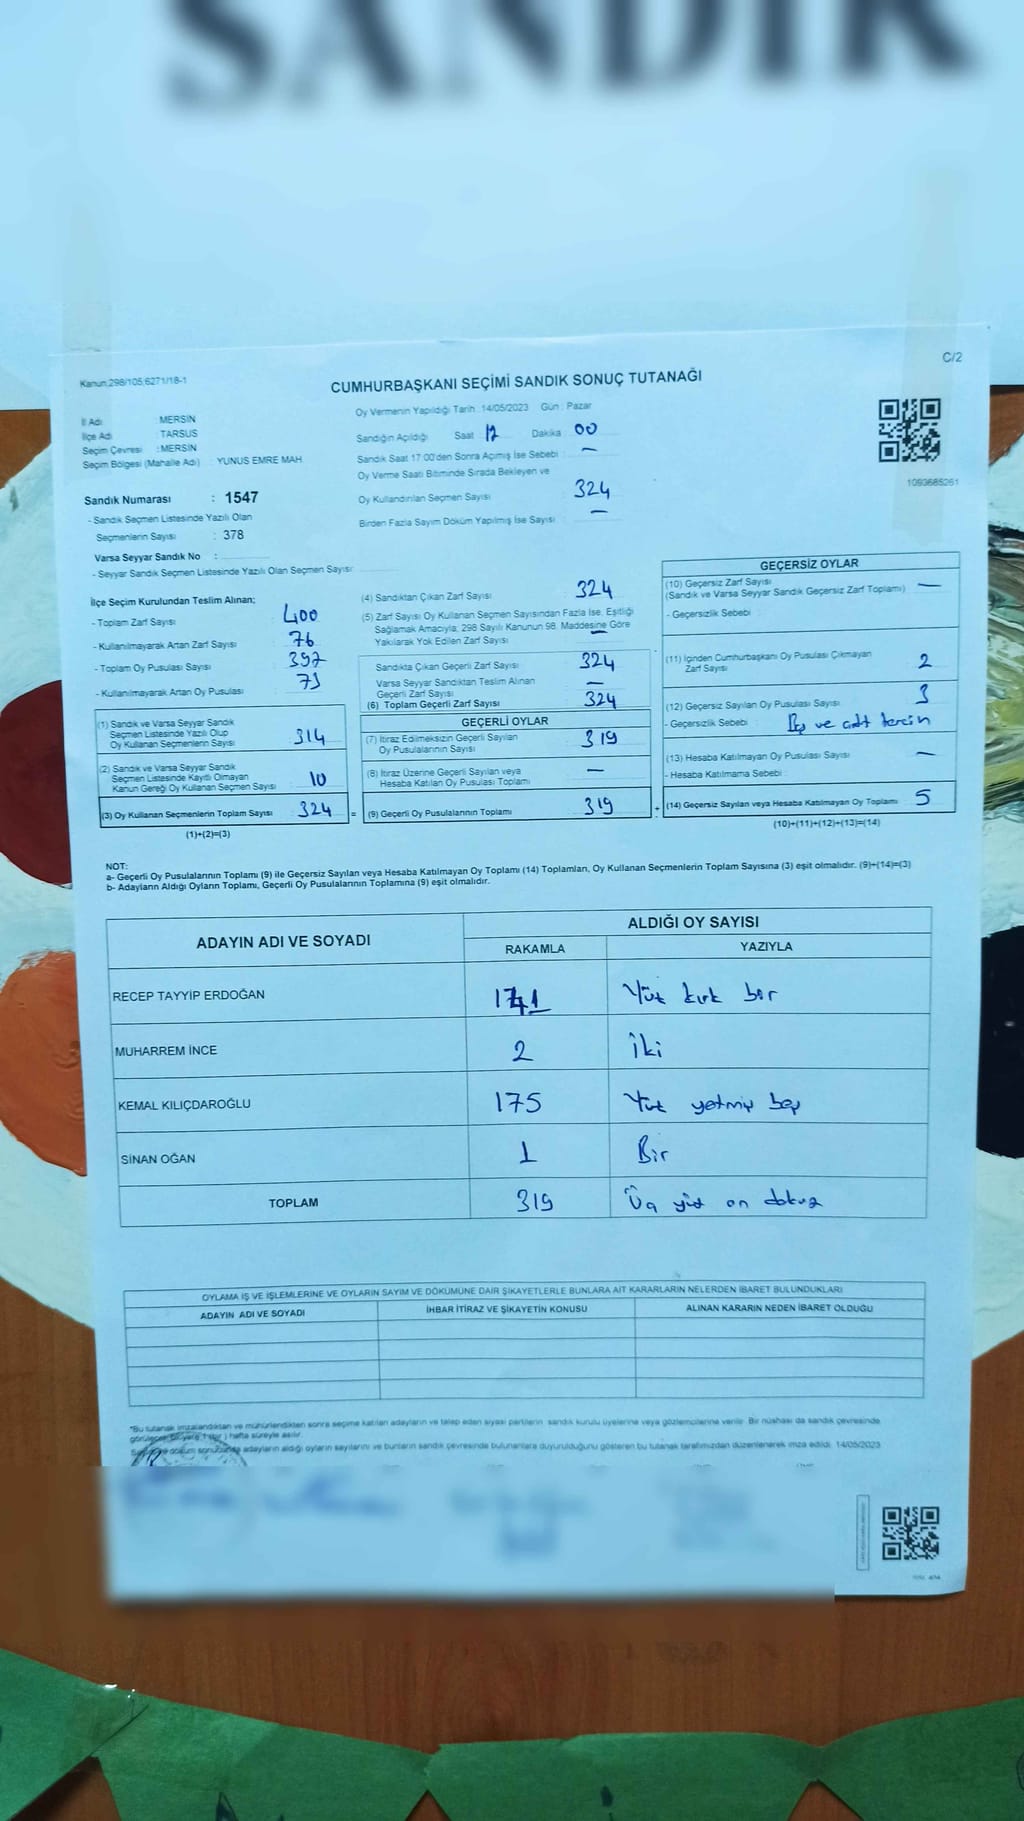 SANDIK
C/2
Kanun,298/105,6271/18-1
CUMHURBAŞKANI SEÇİMİ SANDIK SONUÇ TUTANAĞI
İl Adı : MERSİN
İlçe Adı : TARSUS
Seçim Çevresi : MERSİN
Seçim Bölgesi (Mahalle Adı) : YUNUS EMRE MAH.
Oy Vermenin Yapıldığı Tarih :14/05/2023 Gün : Pazar
Sandığın Açıldığı Saat 17 Dakika 00
Sandık Saat 17:00'den Sonra Açımış İse Sebebi : —
Oy Verme Saati Bitiminde Sırada Bekleyen ve
Oy Kullandırılan Seçmen Sayısı : 324
Birden Fazla Sayım Döküm Yapılmış İse Sayısı : —
1093685261
Sandık Numarası : 1547
- Sandık Seçmen Listesinde Yazılı Olan
Seçmenlerin Sayısı : 378
Varsa Seyyar Sandık No :
- Seyyar Sandık Seçmen Listesinde Yazılı Olan Seçmen Sayısı:
İlçe Seçim Kurulundan Teslim Alınan;
- Toplam Zarf Sayısı : 400
- Kullanılmayarak Artan Zarf Sayısı : 76
- Toplam Oy Pusulası Sayısı : 397
- Kullanılmayarak Artan Oy Pusulası : 73
(1) Sandık ve Varsa Seyyar Sandık
Seçmen Listesinde Yazılı Olup
Oy Kullanan Seçmenlerin Sayısı : 314
(2) Sandık ve Varsa Seyyar Sandık
Seçmen Listesinde Kayıtlı Olmayan
Kanun Gereği Oy Kullanan Seçmen Sayısı : 10
(3) Oy Kullanan Seçmenlerin Toplam Sayısı : 324 =
(1)+(2)=(3)
(4) Sandıktan Çıkan Zarf Sayısı : 324
(5) Zarf Sayısı Oy Kullanan Seçmen Sayısından Fazla İse, Eşitliği
Sağlamak Amacıyla, 298 Sayılı Kanunun 98. Maddesine Göre
Yakılarak Yok Edilen Zarf Sayısı : —
Sandıkta Çıkan Geçerli Zarf Sayısı : 324
Varsa Seyyar Sandıktan Teslim Alınan
Geçerli Zarf Sayısı : —
(6) Toplam Geçerli Zarf Sayısı : 324
GEÇERLİ OYLAR
(7) İtiraz Edilmeksizin Geçerli Sayılan
Oy Pusulalarının Sayısı : 319
(8) İtiraz Üzerine Geçerli Sayılan veya
Hesaba Katılan Oy Pusulası Toplamı : —
(9) Geçerli Oy Pusulalarının Toplamı : 319 +
GEÇERSİZ OYLAR
(10) Geçersiz Zarf Sayısı : —
(Sandık ve Varsa Seyyar Sandık Geçersiz Zarf Toplamı)
- Geçersizlik Sebebi :
(11) İçinden Cumhurbaşkanı Oy Pusulası Çıkmayan
Zarf Sayısı : 2
(12) Geçersiz Sayılan Oy Pusulası Sayısı : 3
- Geçersizlik Sebebi : Boş ve çift tercih
(13) Hesaba Katılmayan Oy Pusulası Sayısı : —
- Hesaba Katılmama Sebebi :
(14) Geçersiz Sayılan veya Hesaba Katılmayan Oy Toplamı : 5
(10)+(11)+(12)+(13)=(14)
NOT:
a- Geçerli Oy Pusulalarının Toplamı (9) ile Geçersiz Sayılan veya Hesaba Katılmayan Oy Toplamı (14) Toplamları, Oy Kullanan Seçmenlerin Toplam Sayısına (3) eşit olmalıdır. (9)+(14)=(3)
b- Adayların Aldığı Oyların Toplamı, Geçerli Oy Pusulalarının Toplamına (9) eşit olmalıdır.
ADAYIN ADI VE SOYADI
ALDIĞI OY SAYISI
RAKAMLA YAZIYLA
RECEP TAYYİP ERDOĞAN 141 Yüz kırk bir
MUHARREM İNCE 2 İki
KEMAL KILIÇDAROĞLU 175 Yüz yetmiş beş
SİNAN OĞAN 1 Bir
TOPLAM 319 Üç yüz on dokuz
OYLAMA İŞ VE İŞLEMLERİNE VE OYLARIN SAYIM VE DÖKÜMÜNE DAİR ŞİKAYETLERLE BUNLARA AİT KARARLARIN NELERDEN İBARET BULUNDUKLARI
ADAYIN ADI VE SOYADI İHBAR İTİRAZ VE ŞİKAYETİN KONUSU ALINAN KARARIN NEDEN İBARET OLDUĞU
*Bu tutanak imzalandıktan ve mühürlendikten sonra seçime katılan adayların ve talep eden siyasi partilerin sandık kurulu üyelerine veya gözlemcilerine verilir. Bir nüshası da sandık çevresinde
görülecek bir yere 1 (bir) hafta süreyle asılır.
dökümü sonucunda adayların aldığı oyların sayılarını ve bunların sandık çevresinde bulunanlara duyurulduğunu gösteren bu tutanak tarafımızdan düzenlenerek imza edildi. 14/05/2023